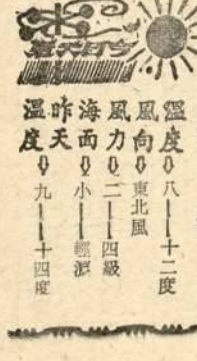 今日天氣
溫度⇨八——十二度
風向⇨東北風
風力⇨二——四級
海面⇨小——輕浪
昨天溫度⇨九——十四度